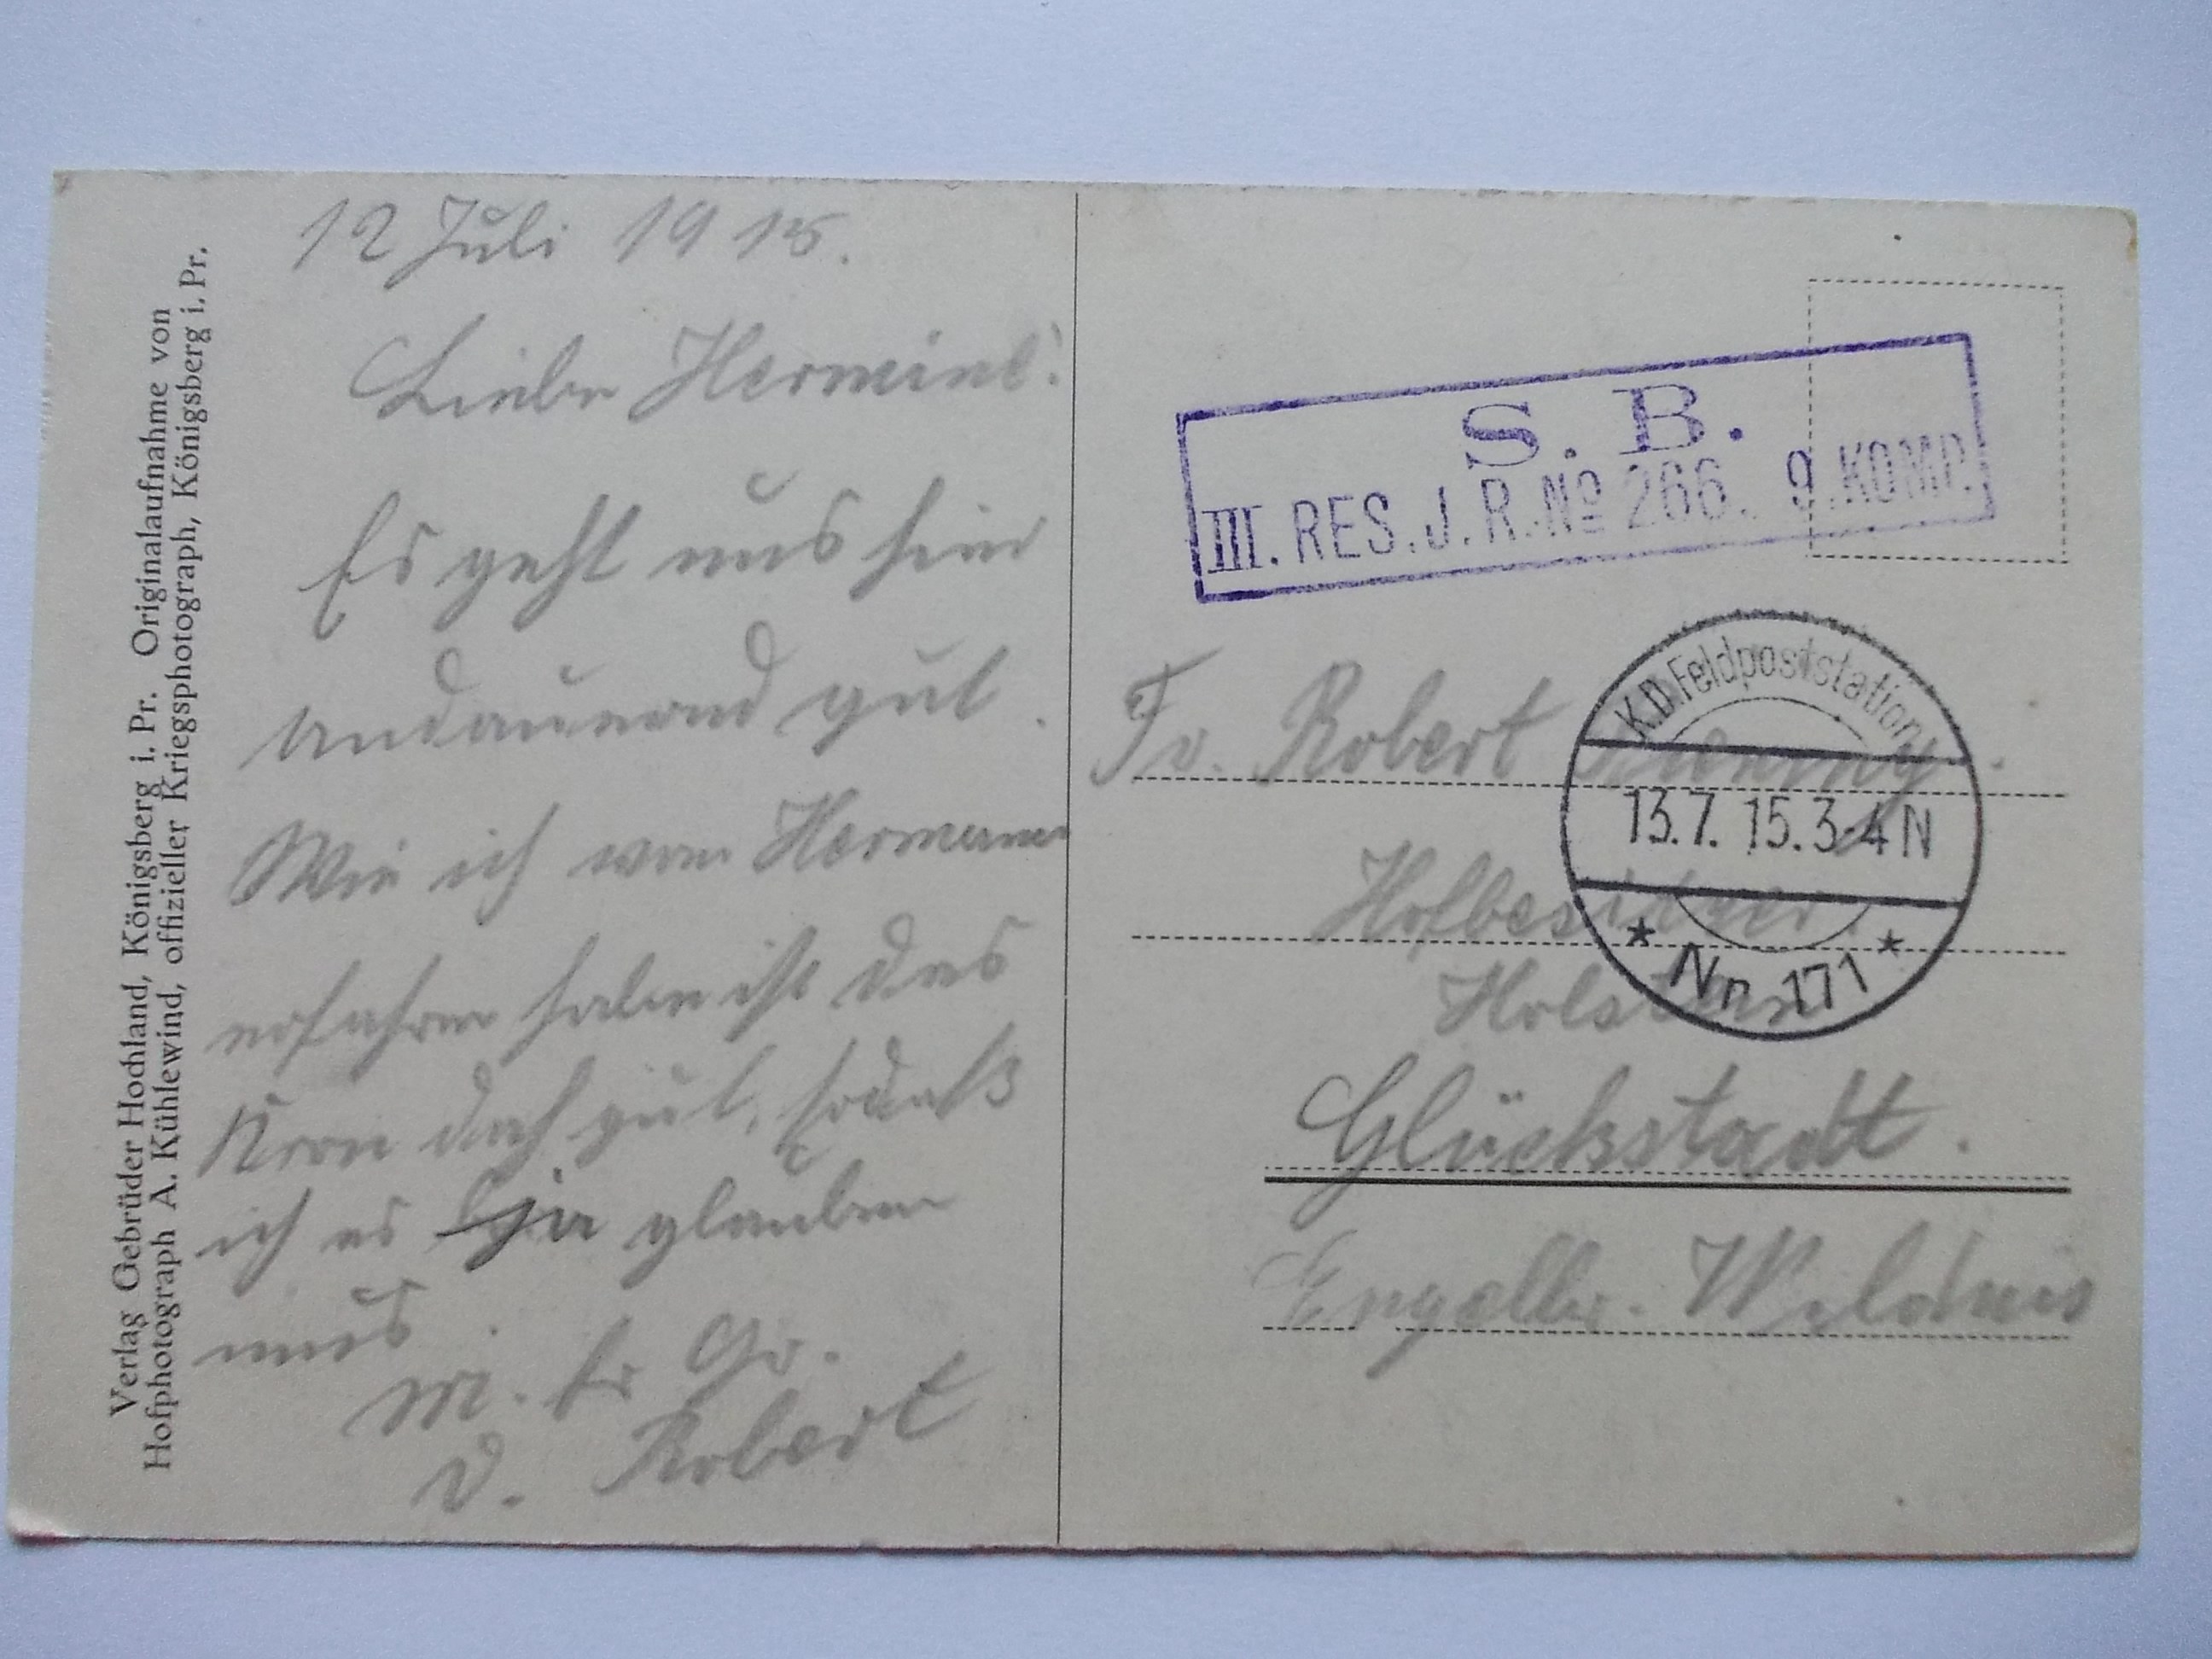 Verlag Gebrüder Hochland, Königsberg i. Pr. Originalaufnahme von
Hofphotograph A. Kühlewind, offizieller Kriegsphotograph, Königsberg i. Pr.
12 Juli 1915.
Liebe Hermine!
Es geht uns hier
andauernd gut.
Wie ich von Hermann
erfahren habe ist das
Korn doch gut, sodaß
ich es ja glauben
mus.
m. fr Gr.
D. Robert
S. B.
III. RES. J. R. No 266. 9. KOMP.
K.D. Feldpoststation
13.7. 15. 3-4 N
* Nr. 171 *
Fr. Robert
Hofbesitzer.
Holstein
Glückstadt.
Engelbr. Wildnis